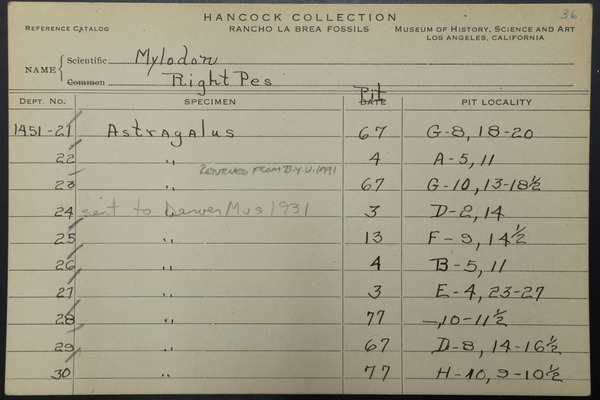 36
HANCOCK COLLECTION
REFERENCE CATALOG RANCHO LA BREA FOSSILS MUSEUM OF HISTORY, SCIENCE AND ART
LOS ANGELES, CALIFORNIA
NAME { Scientific Mylodon
Common Right Pes
DEPT. NO. SPECIMEN Pit DATE PIT LOCALITY
1451-21 Astragalus 67 G-8, 18-20
22 " 4 A-5, 11
RETURNED FROM B.Y.U. 1991
23 " 67 G-10, 13-18½
24 sent to Denver Mus 1931 3 D-2, 14
25 " 13 F-9, 14½
26 " 4 B-5, 11
27 " 3 E-4, 23-27
28 " 77 —, 10-11½
29 " 67 D-8, 14-16½
30 " 77 H-10, 9-10½